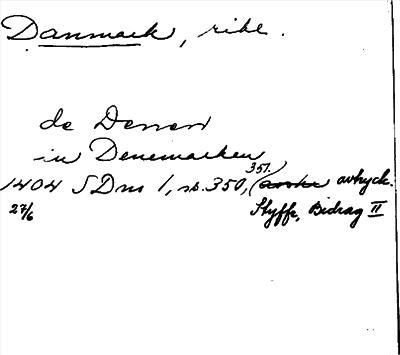 Danmark, rike.
de Denen
in Denemarken
1404 SDns 1, s. 350, 351. (avtryck.
27/6 Styffe, Bidrag II